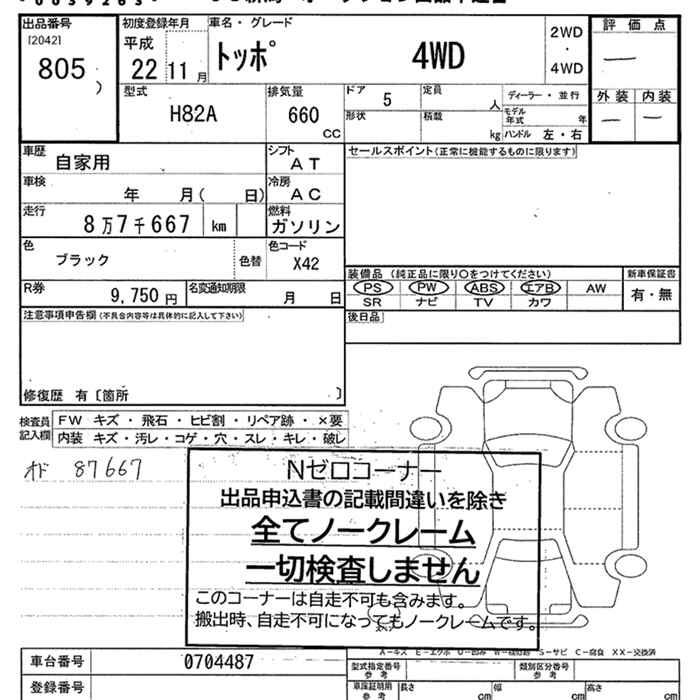 出品番号
120421
805
初度登録年月
平成
22 11月
車名・グレード
トッポ 4WD
2WD
・
4WD
評価点
—
外装 内装
— —
型式
H82A
排気量
660
CC
ドア
5
定員
人
形状
積載
kg
ディーラー・並行
モデル年式
年
ハンドル 左・右
車歴
自家用
シフト
AT
車検
年 月( 日)
冷房
AC
走行
8万7千667 km
燃料
ガソリン
色
ブラック
色替
色コード
X42
R券
9,750円
名変通知期限
月 日
セールスポイント(正常に機能するものに限ります)
装備品 (純正品に限り○をつけてください)
PS PW ABS エアB AW
SR ナビ TV カワ
新車保証書
有・無
後日品
注意事項申告欄(不具合内容等は具体的に記入して下さい)
修復歴 有〔箇所 〕
検査員
記入欄
FW キズ・飛石・ヒビ割・リペア跡・×要
内装 キズ・汚レ・コゲ・穴・スレ・キレ・破レ
オド 87667
Nゼロコーナー
出品申込書の記載間違いを除き
全てノークレーム
一切検査しません
このコーナーは自走不可も含みます。
搬出時、自走不可になってもノークレームです。
A-キズ E-エクボ U-凹み S-サビ C-腐食 XX-交換済
車台番号
0704487
登録番号
型式指定番号
参考
類別区分番号
参考
車庫証明用
参考
長さ
cm
幅
cm
高さ
cm